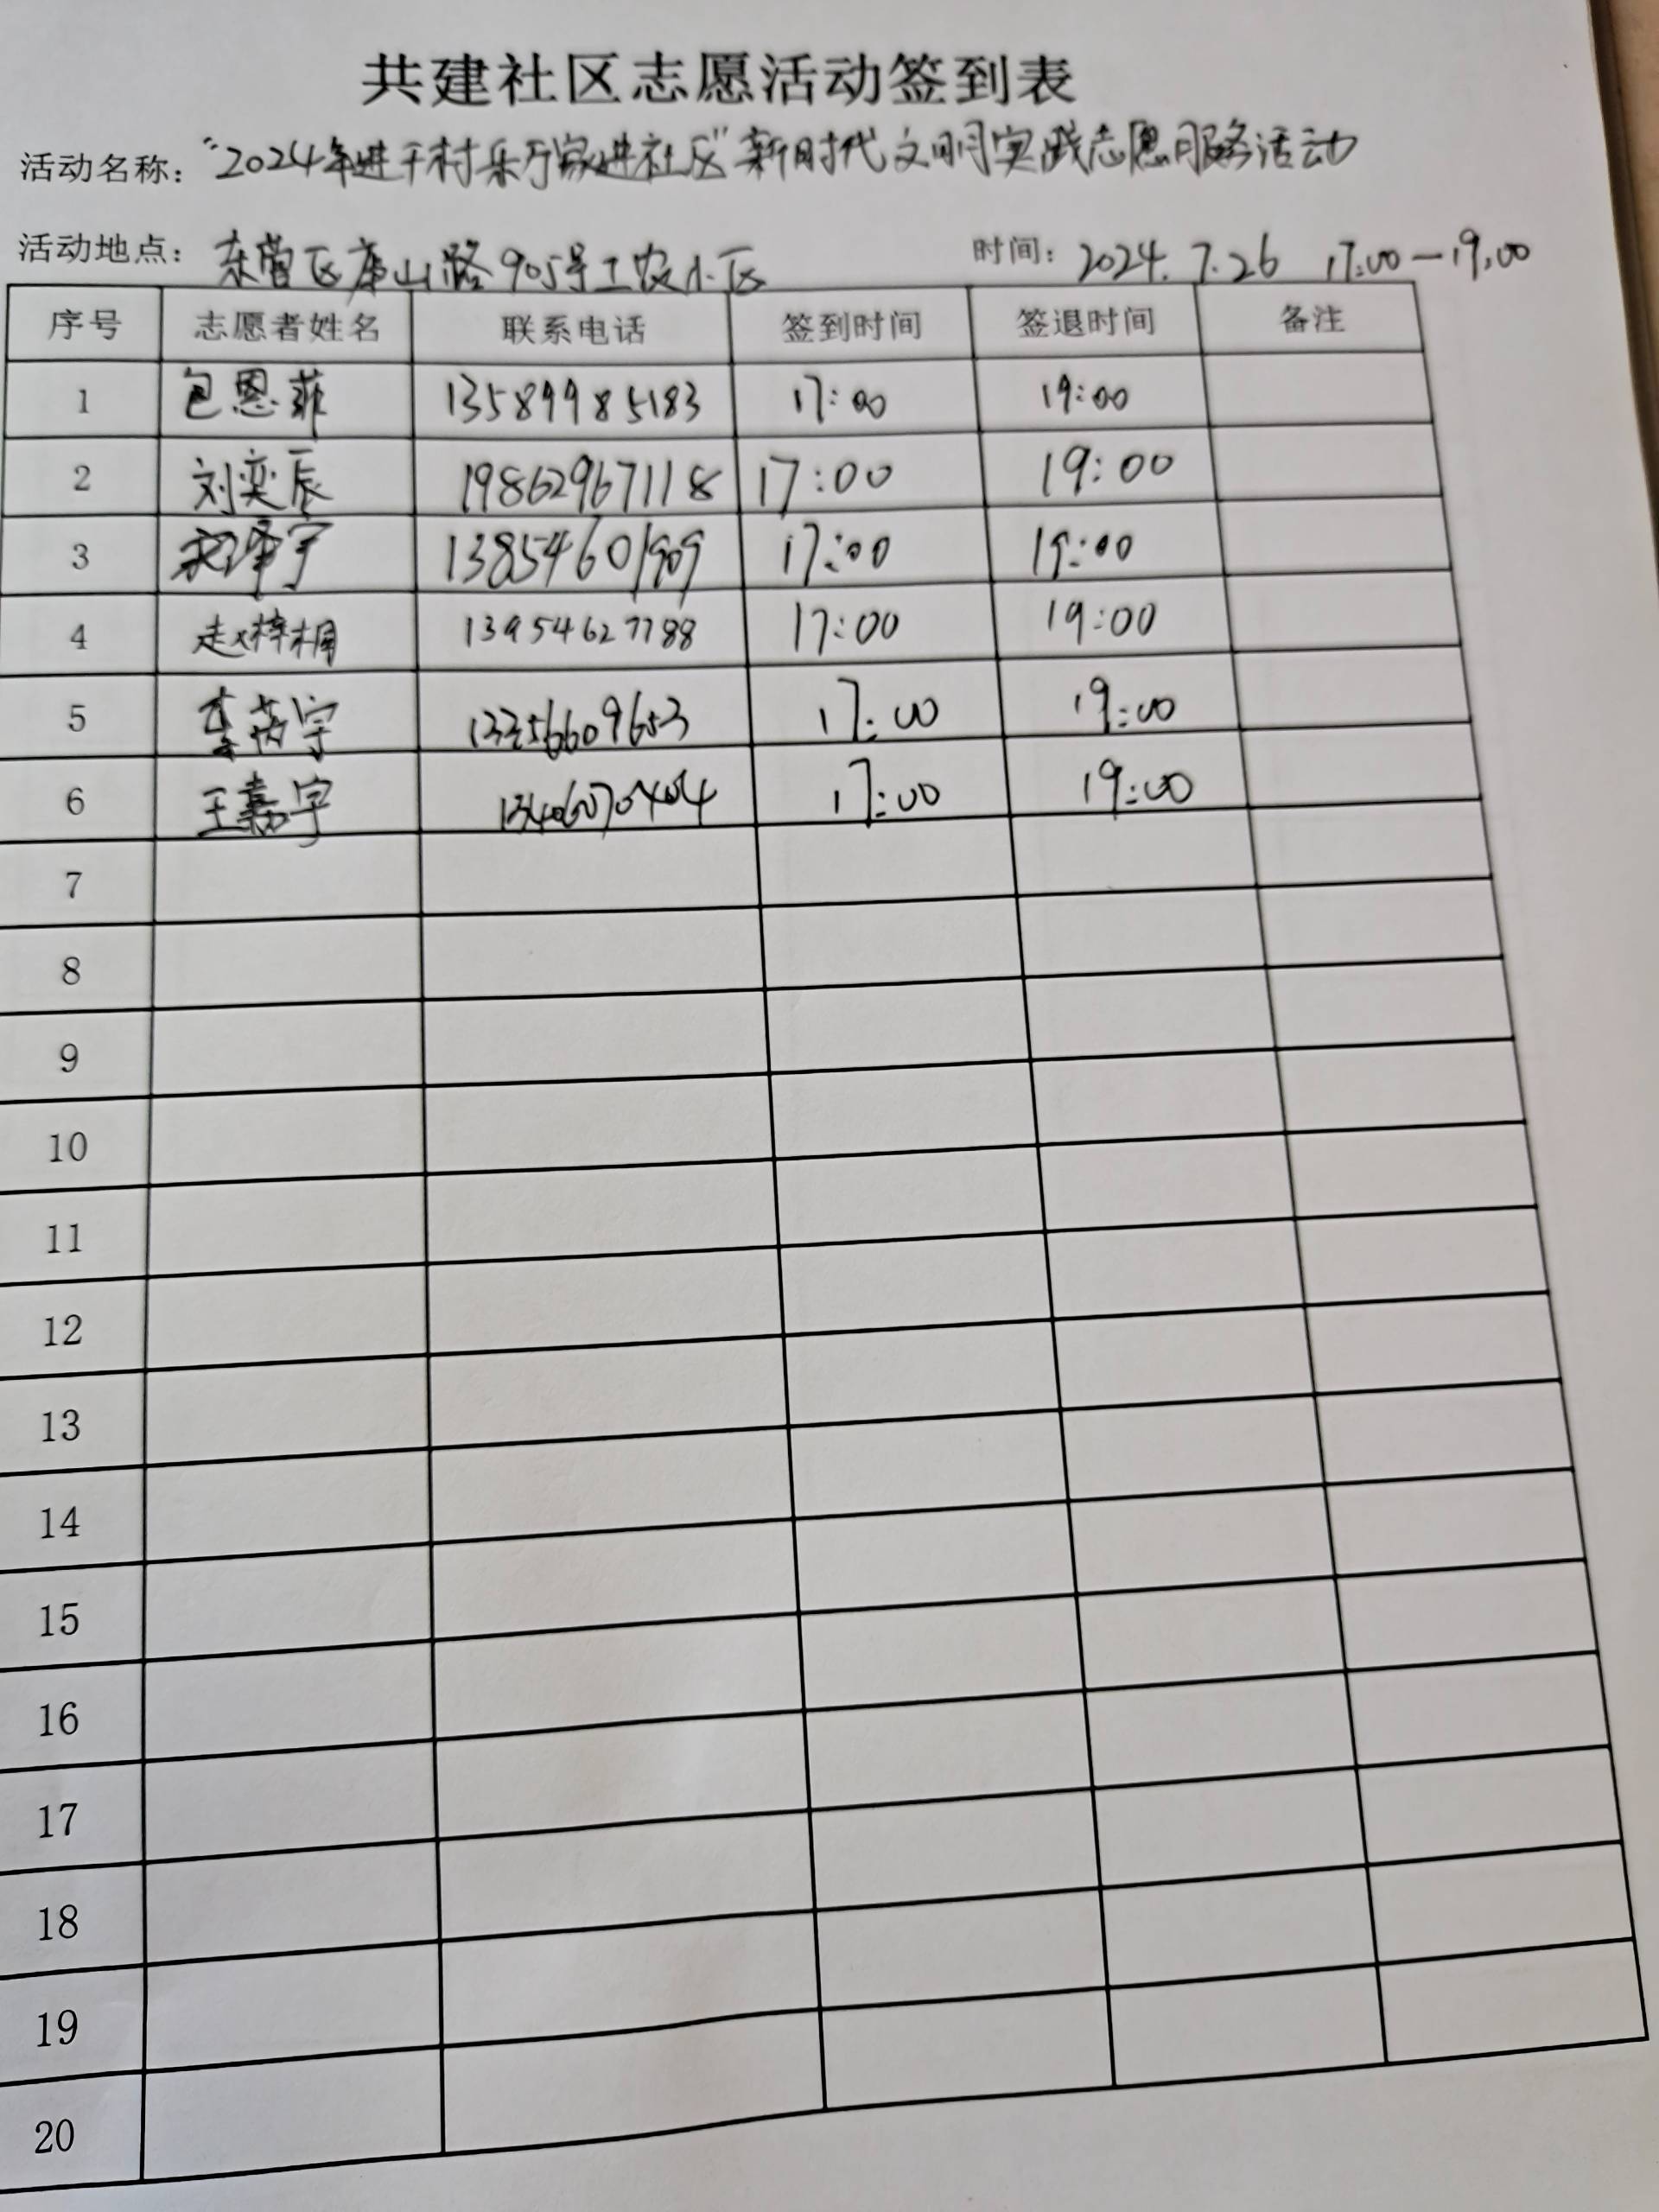 共建社区志愿活动签到表
活动名称: "2024年进千村乐万家进社区"新时代文明实践志愿服务活动
活动地点: 东营区庐山路905号工农小区 时间: 2024.7.26 17:00—19:00
序号 志愿者姓名 联系电话 签到时间 签退时间 备注
1 包恩菲 13589985183 17:00 19:00
2 刘奕辰 19862967118 17:00 19:00
3 宋泽宇 13854601909 17:00 19:00
4 赵梓桐 13954627788 17:00 19:00
5 李芮宇 17:00 19:00
6 王嘉宇 17:00 19:00
7
8
9
10
11
12
13
14
15
16
17
18
19
20